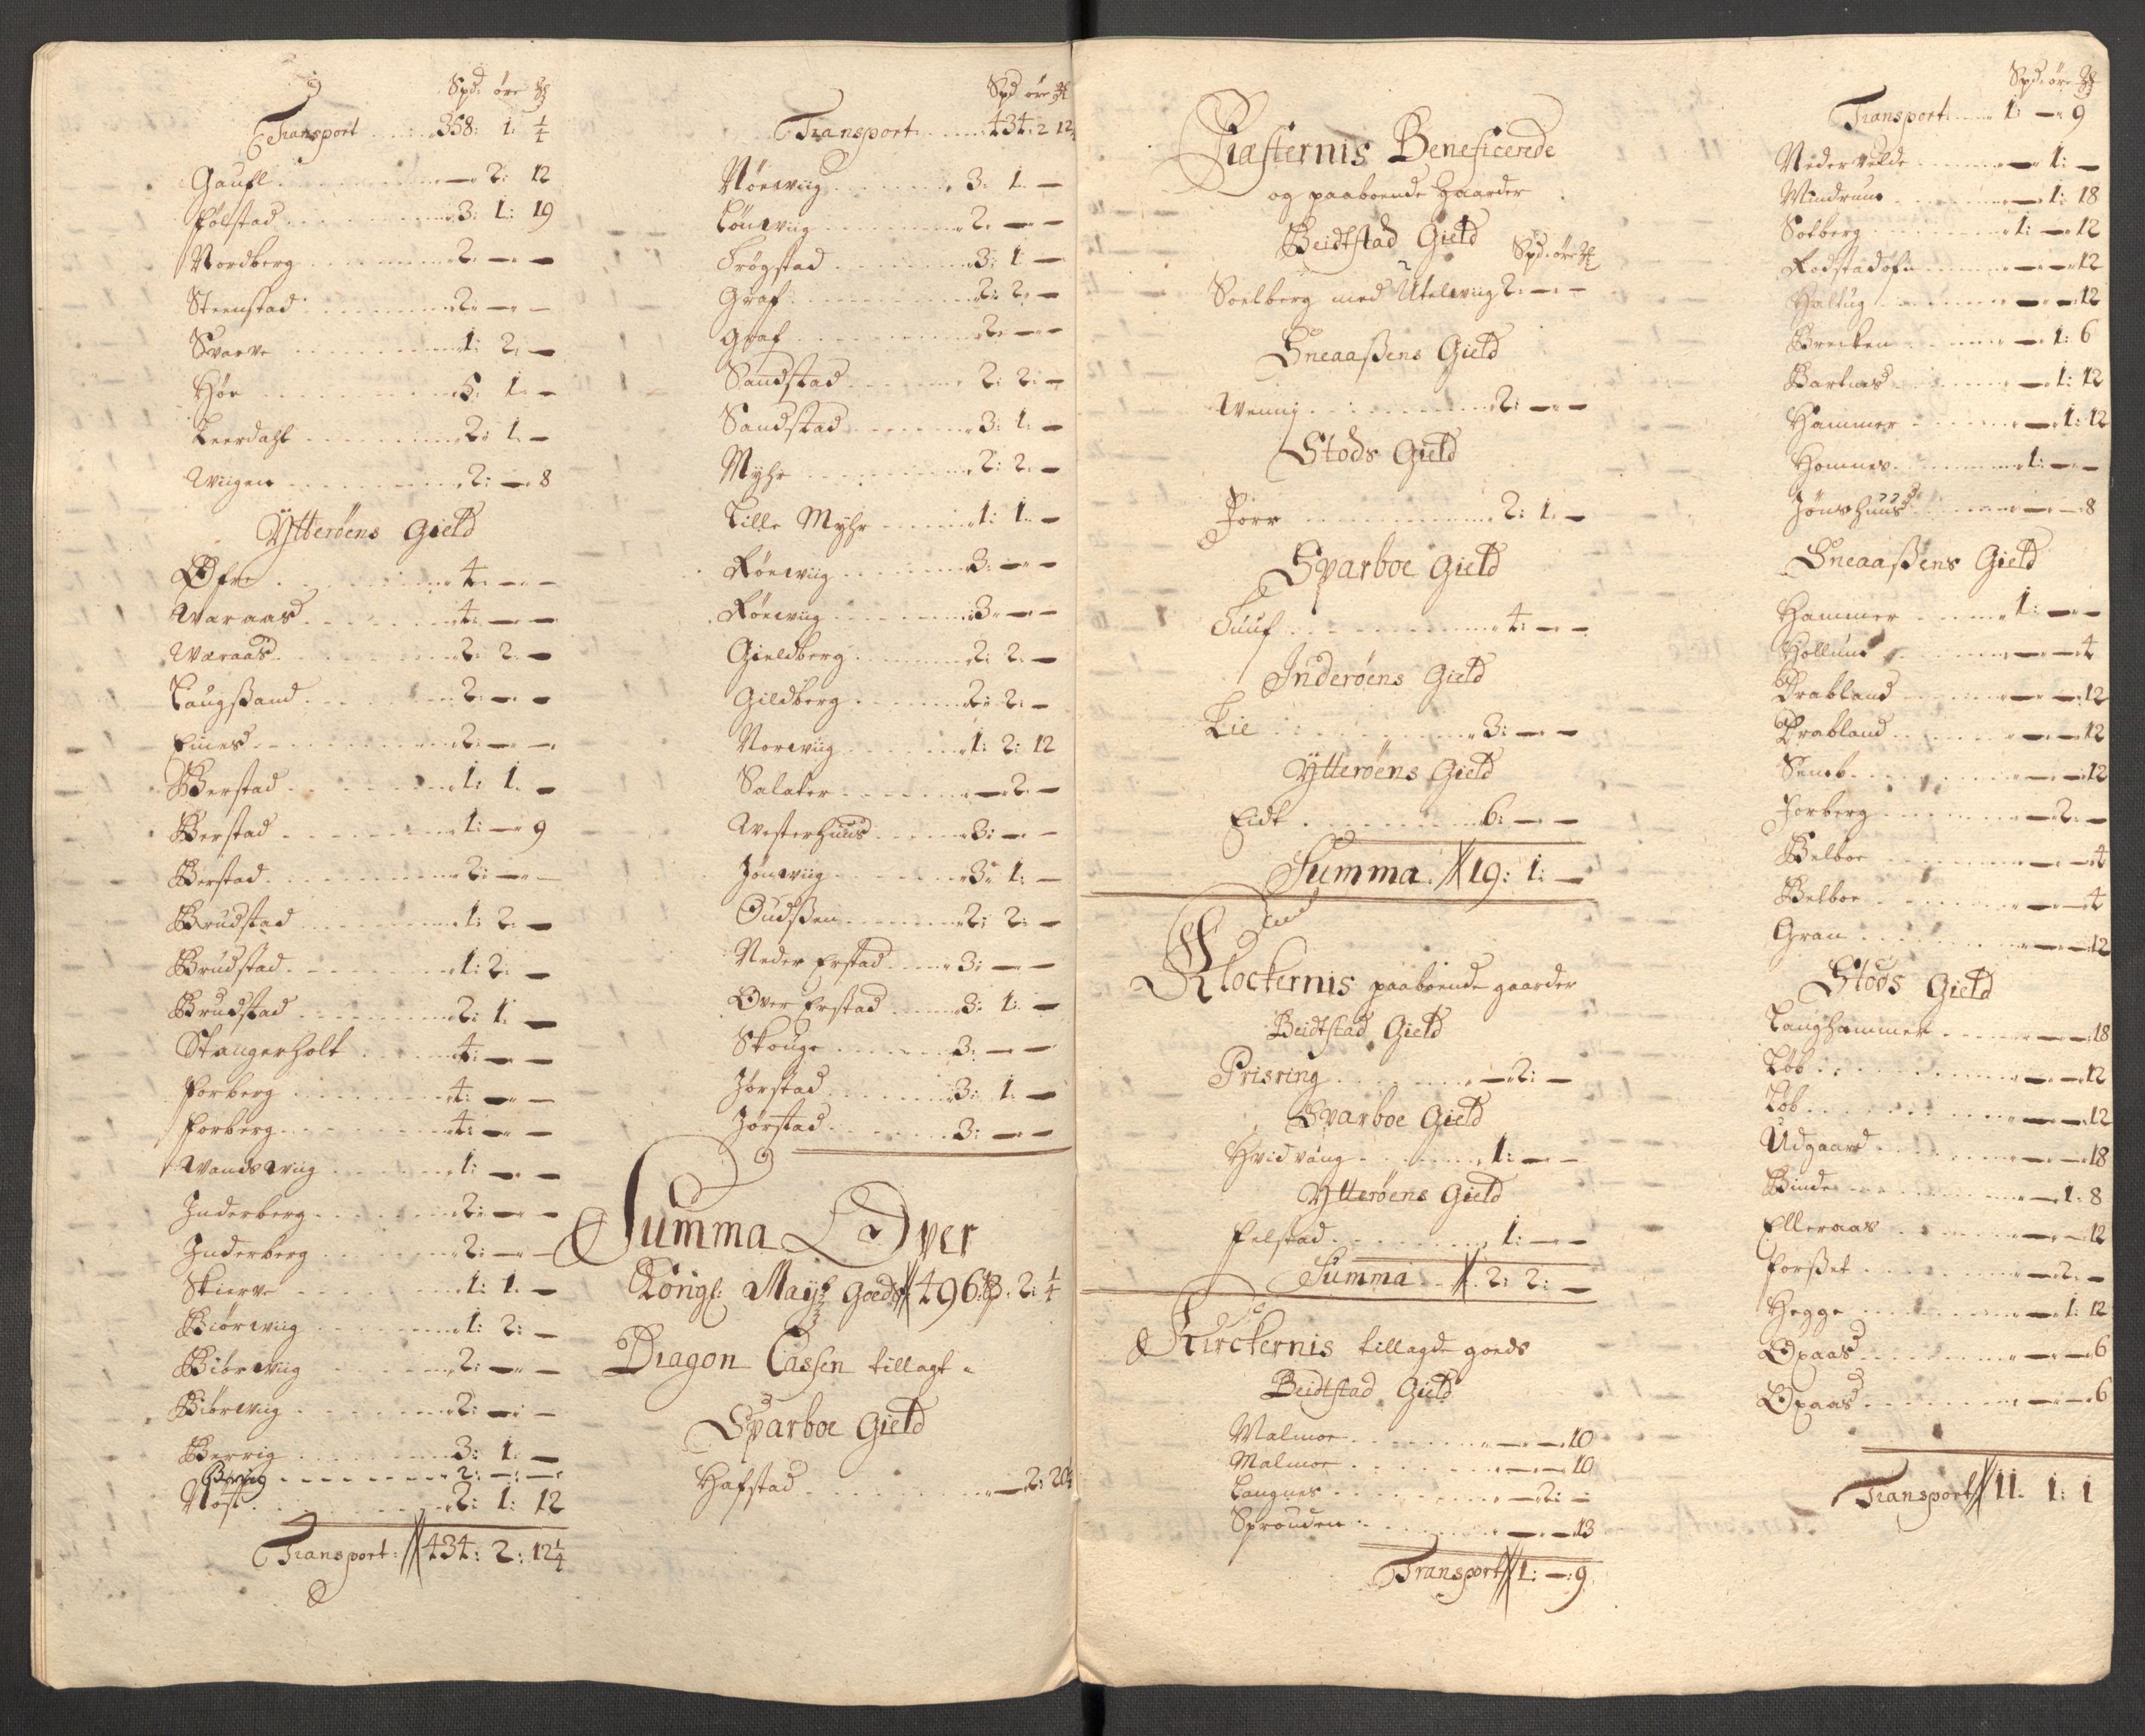 Spd. öre
Transport . . . . 358: 1: 1/4
Gaufl . . . . — 2: 12
Følstad . . . . 3: 1: 19
Nordberg . . . . 2: — —
Steenstad . . . . 2: — —
Svarve . . . . 1: 2: —
Høe . . . . 5: 1: —
Leerdahl . . . . 2: 1: —
Wiigen . . . . 2: — 8
Ytterøens Gield
Øfre . . . . 4: — —
Waraas . . . . 4: — —
Wæraas . . . . 2: 2: —
Laugßand . . . . 2: — —
Eines . . . . 2: — —
Berstad . . . . 1: 1: —
Berstad . . . . 1: — 9
Berstad . . . . 2: — —
Brudstad . . . . 1: 2: —
Brudstad . . . . 1: 2: —
Brudstad . . . . 2: 1: —
Stangerholt . . . . 4: — —
Forberg . . . . 4: — —
Forberg . . . . 4: — —
Wandswiig . . . . 1: — —
Inderberg . . . . 2: — —
Inderberg . . . . 2: — —
Skierve . . . . 1: 1: —
Biørwiig . . . . 1: 2: —
Biørwiig . . . . 2: — —
Biørwiig . . . . 2: — —
Berrig . . . . 3: 1: —
Berrig . . . . 2: — —
Nøst . . . . 2: 1: 12
Transport: 434: 2: 12 1/4
Spd öre
Transport . . . . 434: 2 12
Nøewiig . . . . 3: 1: —
Lønwiig . . . . 2: — —
Trøgstad . . . . 3: 1: —
Graf . . . . 2: 2: —
Graf . . . . 2: — —
Sandstad . . . . 2: 2: —
Sandstad . . . . 3: 1: —
Myhr . . . . 2: 2: —
Lille Myhr . . . . 1: 1: —
Røewiig . . . . 3: — —
Røewiig . . . . 3: — —
Gieldberg . . . . 2: 2: —
Gildberg . . . . 2: 2: —
Norwiig . . . . 1: 2: 12
Salater . . . . — 2: —
Westerhuus . . . . 3: — —
Jønwiig . . . . 3: 1: —
Gudßen . . . . 2: 2: —
Neder Erstad . . . . 3: — —
Øver Erstad . . . . 3: 1: —
Skouge . . . . 3: — —
Jørstad . . . . 3: 1: —
Jørstad . . . . 3: — —
Summa Over
Kongl: May: Goeds 496: 2: 1/4
Dragon Cassen tillagt
Sparboe Gield
Hafstad . . . . — 2: 20
Præsternis Beneficerede
og paaboende Gaarder
Beidtstad Gield Spd. öre
Soelberg med Utelwiig 2: — —
Sneaaßens Gield
Wennig . . . . 2: — —
Stods Gield
Forr . . . . 2: 1: —
Sparboe Gield
Tuuf . . . . 4: — —
Inderøens Gield
Lie . . . . 3: — —
Ytterøens Gield
Eidt . . . . 6: — —
Summa. 19: 1: —
Klockernis paaboende gaarder
Beidtstad Gield
Prisring . . . . — 2: —
Sparboe Gield
Hvidvang . . . . 1: — —
Ytterøens Gield
Felstad . . . . 1: — —
Summa . . 2: 2: —
Kirckernis tillagde goeds
Beidtstad Gield
Malmoe . . . . — — 10
Malmoe . . . . — — 10
Langnes . . . . — 2: —
Sprouden . . . . — — 13
Transport 1: — : 9
Spd. öre
Transport . . . . 1: — 9
Nedervelde . . . . — 1: —
Mindrum . . . . — 1: 18
Solberg . . . . 1: — 12
Rodstadøfn . . . . — — 12
Haltug . . . . — — 12
Breiten . . . . — 1: 6
Bartnes . . . . — 1: 12
Hammer . . . . — 1: 12
Homnes . . . . 1: — —
Jønshuus . . . . — — 8
Sneaaßens Gield
Hammer . . . . 1: — —
Hollum . . . . — — 4
Brabland . . . . — — 12
Brabland . . . . — — 12
Semb . . . . — — 12
Forberg . . . . — 2: —
Belboe . . . . — — 4
Belboe . . . . — — 4
Gran . . . . — — 12
Stods Gield
Langhammer . . . . — — 18
Løb . . . . — — 12
Løb . . . . — — 12
Udgaard . . . . — — 18
Binde . . . . — 1: 8
Elleraas . . . . — — 12
Forßet . . . . — 2: —
Hegge . . . . — 1: 12
Opaas . . . . — — 6
Opaas . . . . — — 6
Transport 11: 1: 1